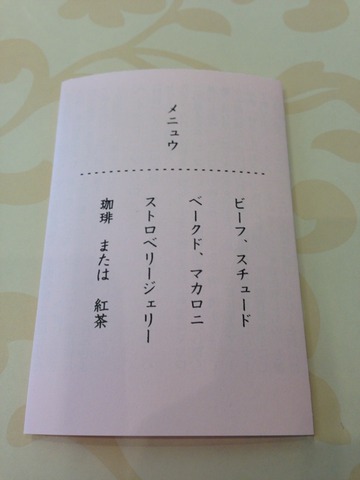 メニュウ
ビーフ、スチュード
ベークド、マカロニ
ストロベリージェリー
珈琲 または 紅茶